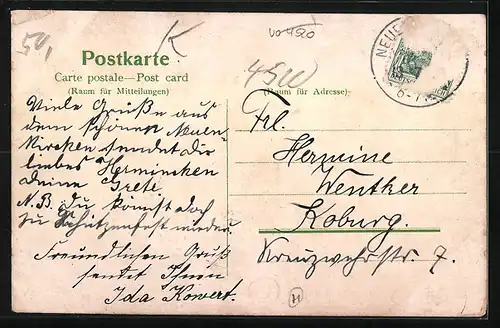 50,
K
vo420
Postkarte
Carte postale—Post card
(Raum für Mitteilungen)
(Raum für Adresse)
NEUE
6-7
Viele Grüße aus
dem schönen
kirchen sendet dir
liebes Herminchen
deine Grete.
N.B. Du kommst doch
zu Schützenfest wieder.
Freundlichen Gruß
sendet Ihnen
Ida Kowert.
Frl.
Hermine
Wenther
Koburg.
Kreuzwehrstr. 7.
H